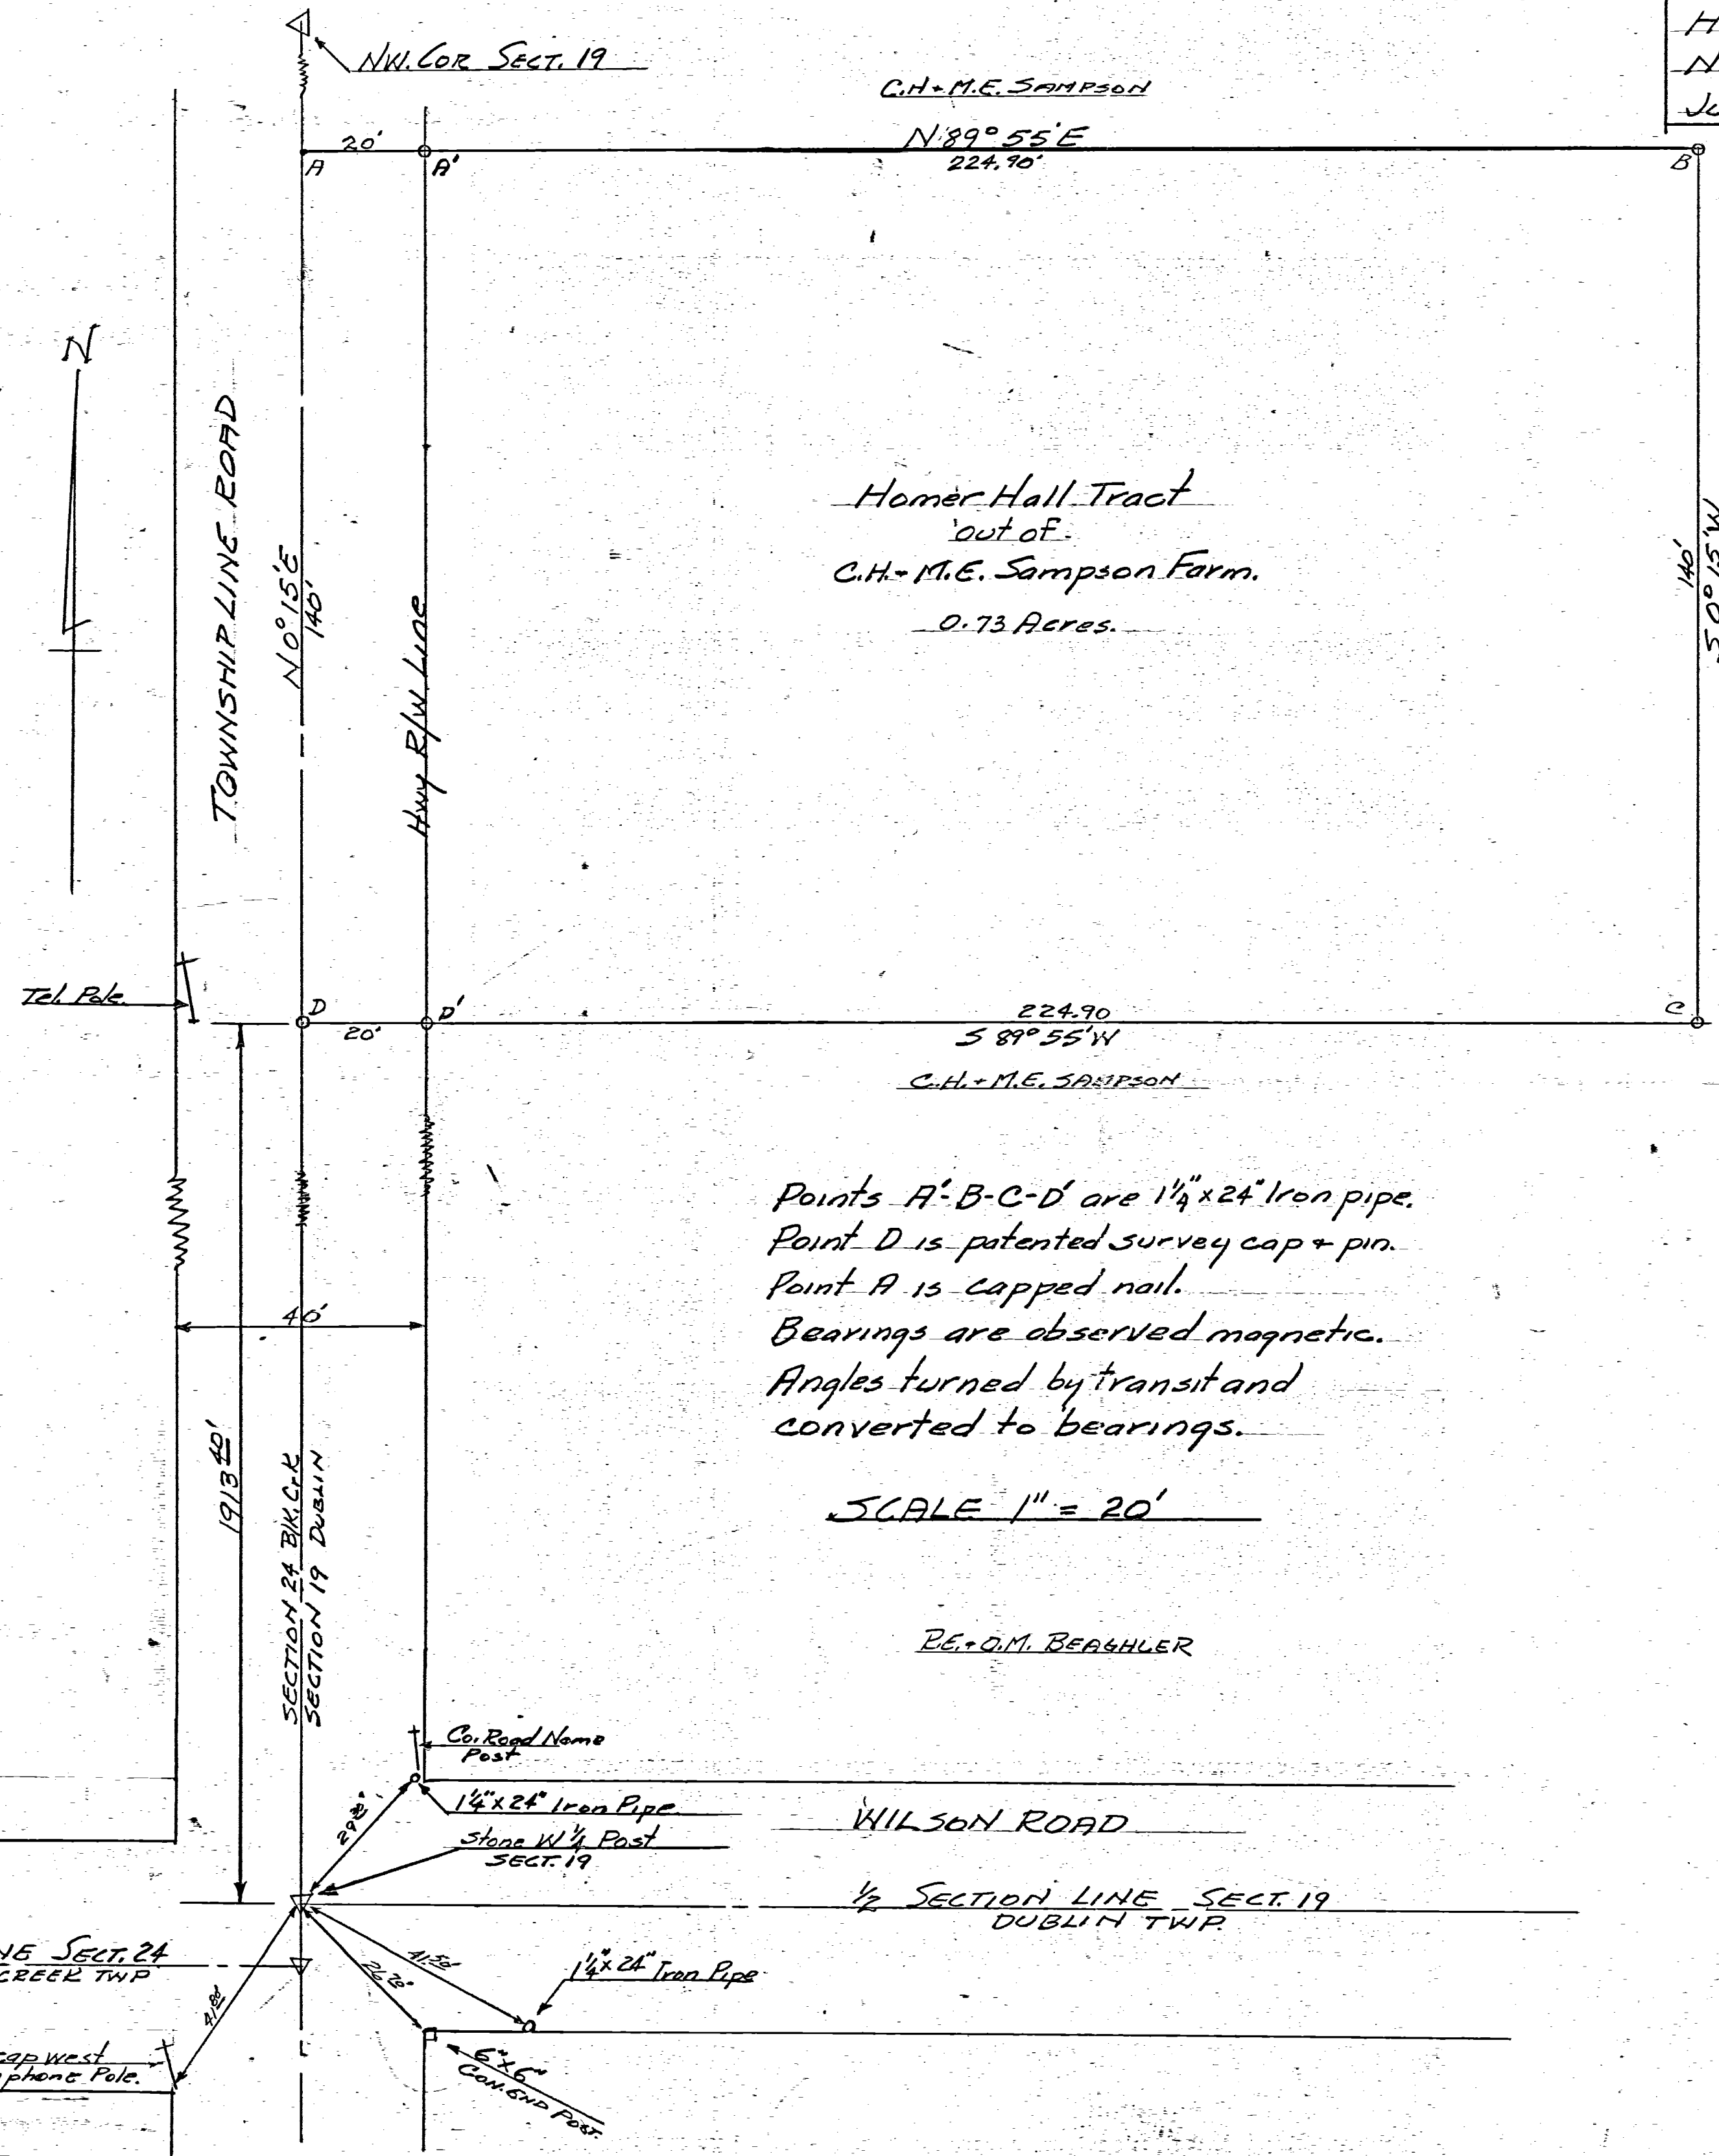 NW. COR SECT. 19
C.H + M.E. SAMPSON
N 89° 55' E
224.90'
20'
A
A'
B
N
TOWNSHIP LINE ROAD
N 0° 15' E
140'
Hwy R/W Line
Homer Hall Tract
out of
C.H. + M.E. Sampson Farm.
0.73 Acres.
140'
S 0° 15' W
Tel. Pole
D
20'
D'
224.90
S 89° 55' W
C
C.H. + M.E. SAMPSON
Points A'-B-C-D' are 1¼" x 24" Iron pipe.
Point D is patented survey cap + pin.
Point A is capped nail.
Bearings are observed magnetic.
Angles turned by transit and
converted to bearings.
40'
1913 40'
SECTION 24 B/K. Crk
SECTION 19 DUBLIN
SCALE 1" = 20'
P.E. + O.M. BEAGHLER
Co. Road Name
Post
1¼" x 24" Iron Pipe
Stone W ¼ Post
SECT. 19
WILSON ROAD
½ SECTION LINE SECT. 19
DUBLIN TWP.
NE SECT. 24
CREEK TWP
41.50
26.20'
1¼" x 24" Iron Pipe
41.80
cap west
phone Pole.
6" x 6"
CON. END POST.